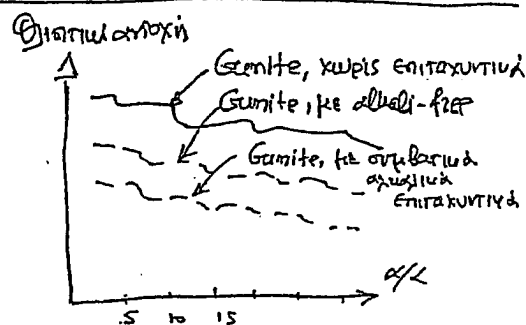 Θλιπτική αντοχή
Gunite, χωρίς επιταχυντικά
Gunite, με alkali-free
Gunite, με συμβατικά
αλκαλικά
επιταχυντικά
.5 10 15